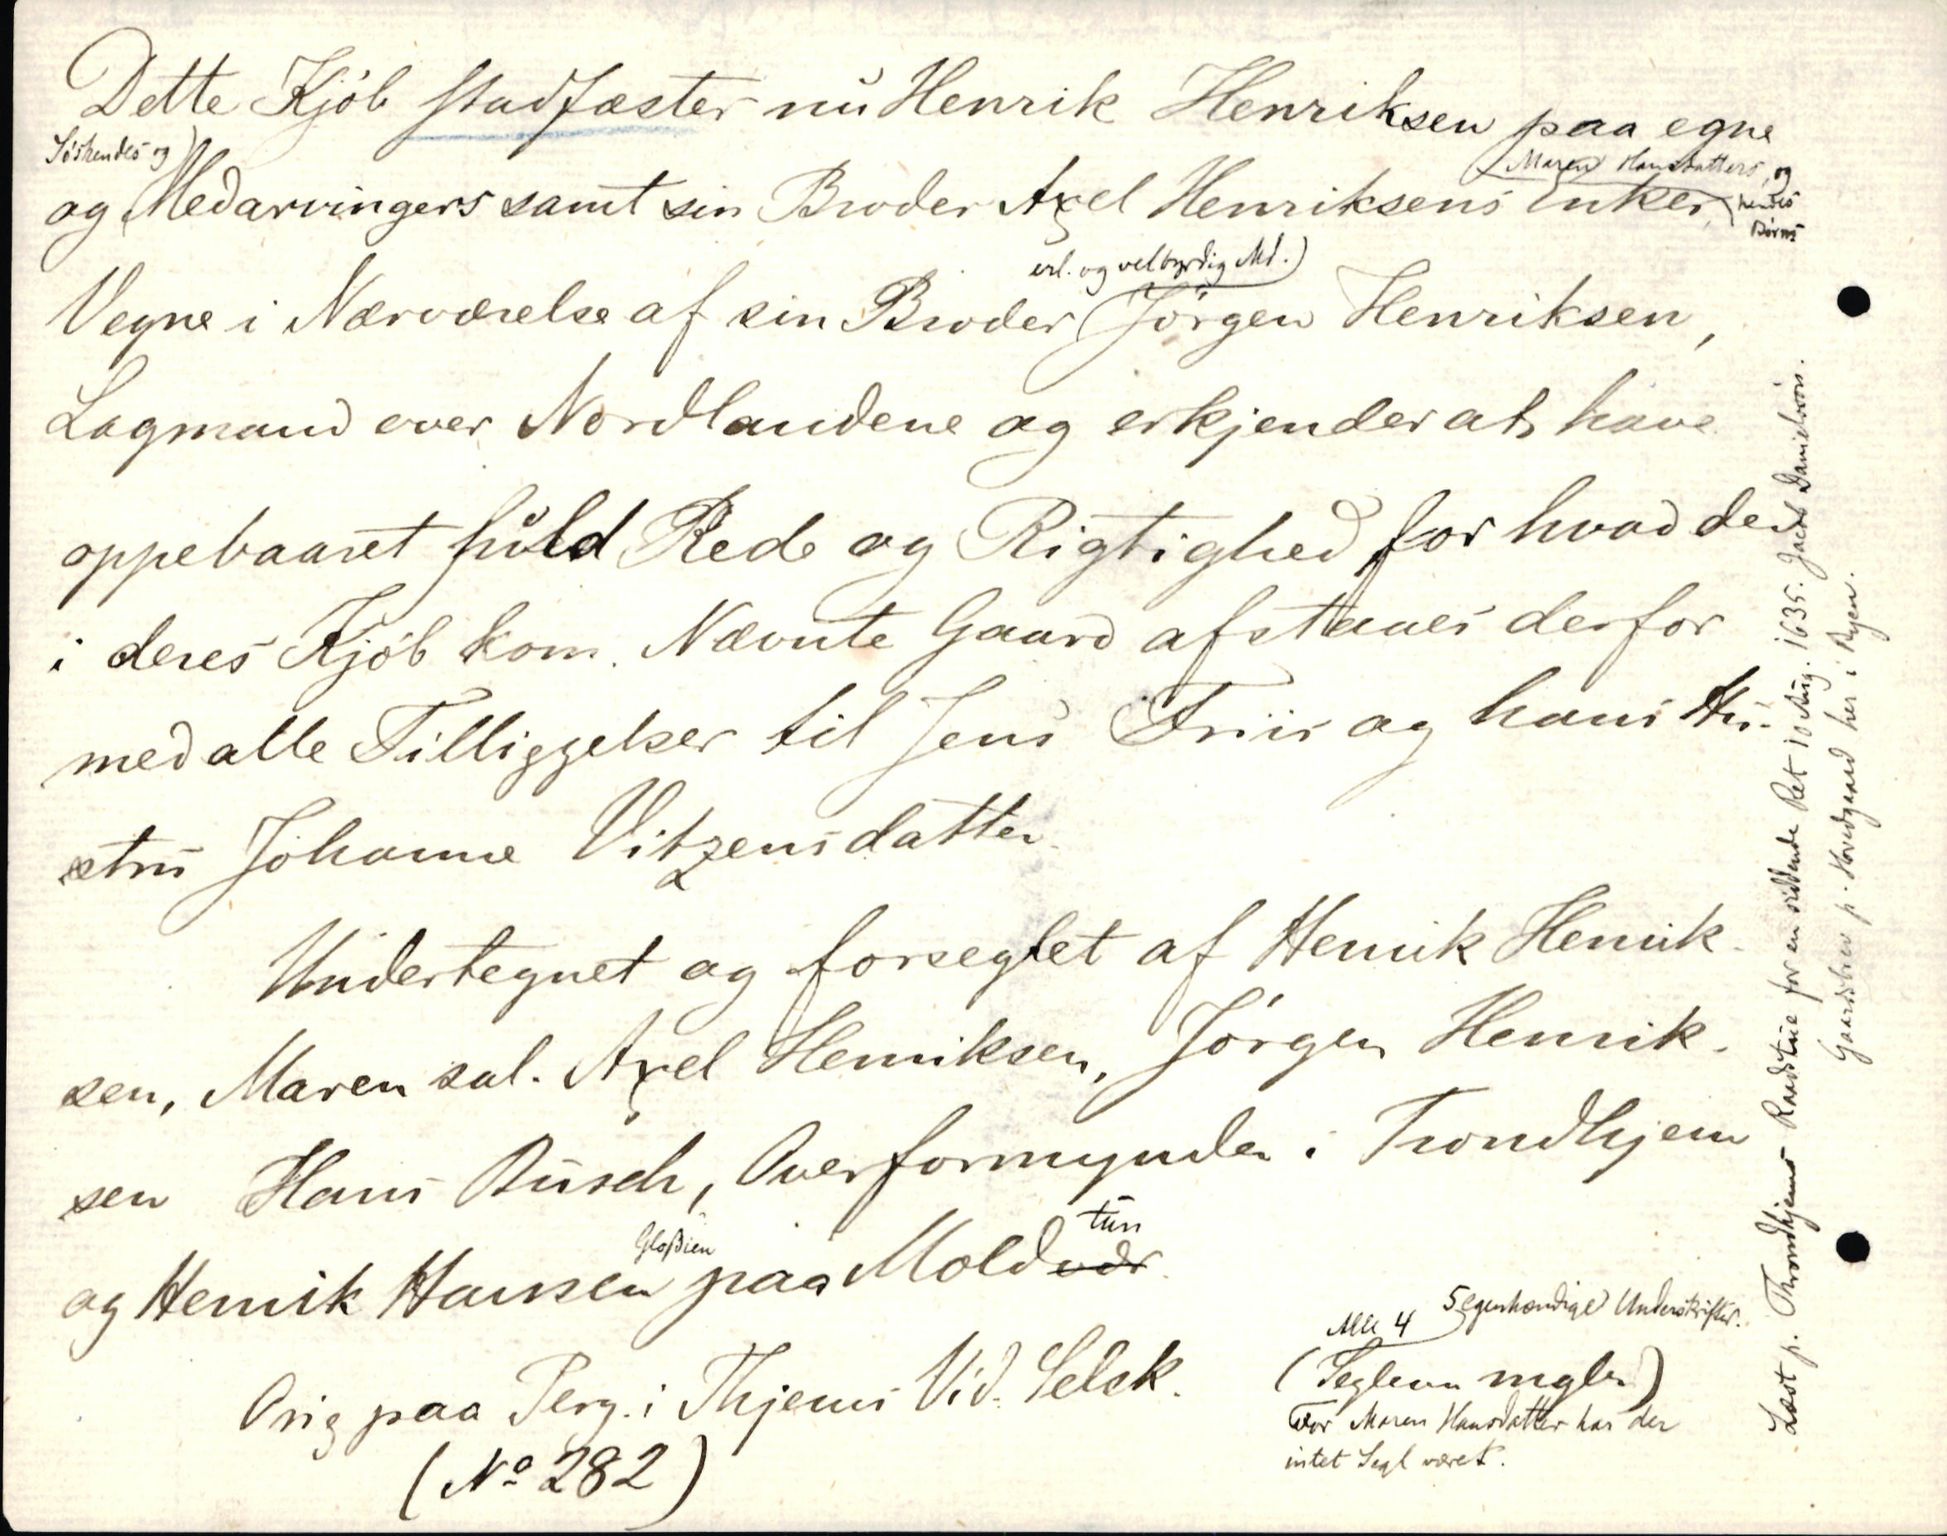 Dette Kjöb stadfæster nu Henrik Henriksen paa egne
Söskendes og
Maren Hansdatters, og
og Medarvingers samt sin Broder Axel Henriksens Enkes, hendes
Börns
erl. og velbyrdig Md.
Vegne i Nærværelse af sin Broder Jörgen Henriksen,
Lagmand over Nordlandene og erkjender at have
oppebaaret fuld Rede og Rigtighed for hvad der
i deres Kjöb kom. Nævnte Gaard afstaaes derfor
med alle Tilliggelser til Jens Friis og hans Hu-
stru Johanne Vitzensdatter
Undertegnet og forseglet af Henrik Henrik-
sen, Maren sal. Axel Henriksen, Jörgen Henrik-
sen Hans Busch, Overformynder i Trondhjem
og Henrik Hansen paa Moldvær
tun
Orig paa Perg. i Thjems Vid. Selsk.
(No 282)
5 egenhændige Underskrifter.
Alle 4
(Seglene mgler)
For Maren Hansdatter har der
intet Segl været.
Læst p. Throndhjems Raadstue for en siddende Ret 10 Aug. 1635. Jacob Danielsön.
her i Byen.